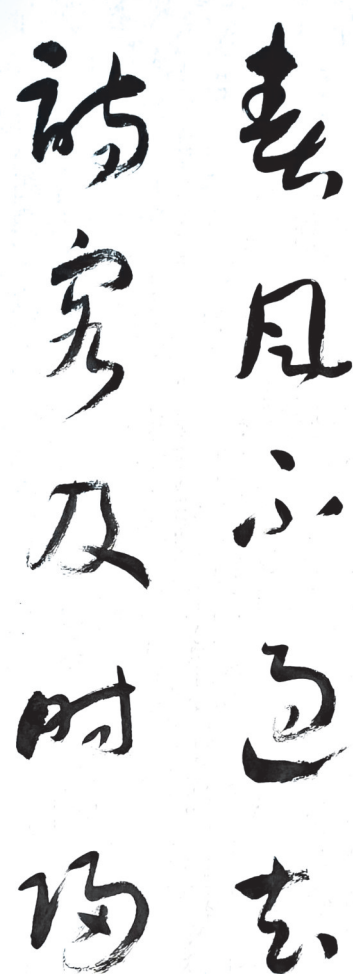 春風不過去
詩客及时歸